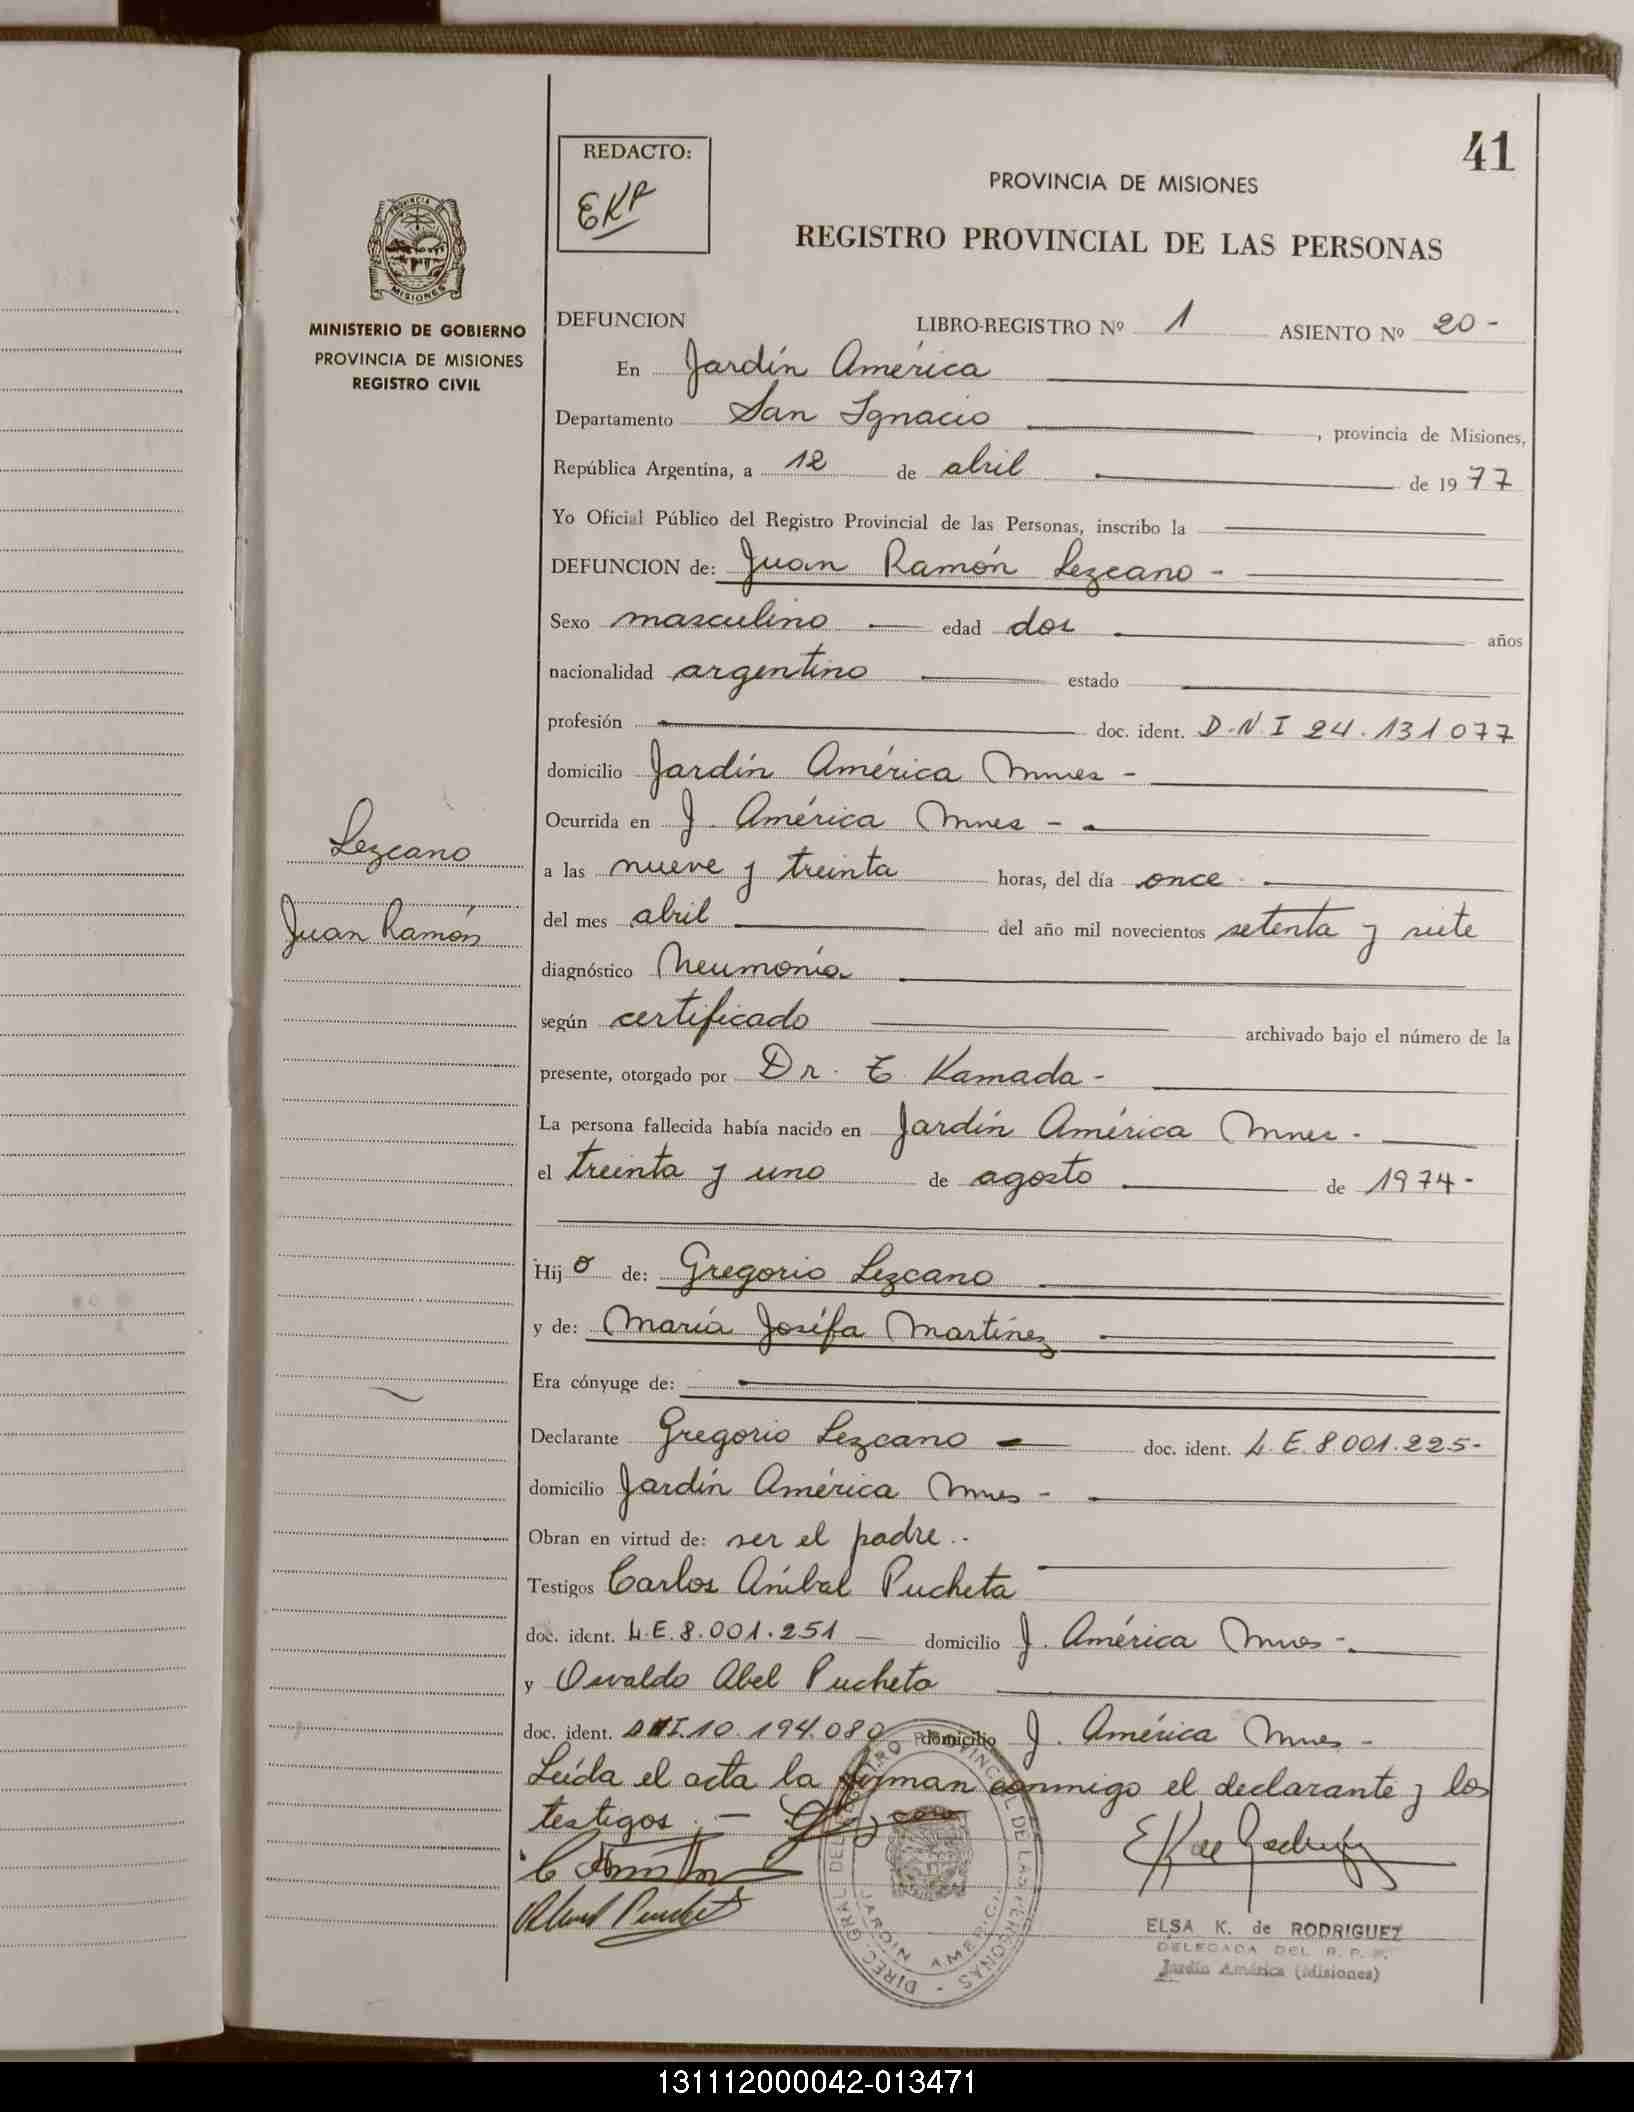 41
REDACTO:
EKR
PROVINCIA DE MISIONES
REGISTRO PROVINCIAL DE LAS PERSONAS
PROVINCIA DE
MISIONES
MINISTERIO DE GOBIERNO
PROVINCIA DE MISIONES
REGISTRO CIVIL
DEFUNCION LIBRO-REGISTRO Nº 1 ASIENTO Nº 20-
En Jardín América
Departamento San Ignacio, provincia de Misiones,
República Argentina, a 12 de abril de 1977
Yo Oficial Público del Registro Provincial de las Personas, inscribo la
DEFUNCION de: Juan Ramón Lezcano -
Sexo masculino edad dos años
nacionalidad argentino estado
profesión doc. ident. D.N.I 24.131077
domicilio Jardín América Mnes -
Ocurrida en J. América Mnes -
Lezcano
Juan Ramón
a las nueve y treinta horas, del día once
del mes abril del año mil novecientos setenta y siete
diagnóstico Neumonía
según certificado archivado bajo el número de la
presente, otorgado por Dr. T. Kamada -
La persona fallecida había nacido en Jardín América Mnes -
el treinta y uno de agosto de 1974-
Hijo de: Gregorio Lezcano
y de: María Josefa Martínez
Era cónyuge de:
Declarante Gregorio Lezcano doc. ident. L.E.8.001.225-
domicilio Jardín América Mnes -
Obran en virtud de: ser el padre.-
Testigos Carlos Aníbal Pucheta
doc. ident. L.E.8.001.251 domicilio J. América Mnes -
y Osvaldo Abel Pucheta
doc. ident. DNI.10.194.080 domicilio J. América Mnes -
Leída el acta la firman conmigo el declarante y los
testigos.-
DIREC. GRAL DEL REGISTRO PROVINCIAL DE LAS PERSONAS -
JARDIN AMERICA
EK de Rodriguez
ELSA K. de RODRIGUEZ
DELEGADA DEL R. P. P.
Jardín América (Misiones)
131112000042-013471